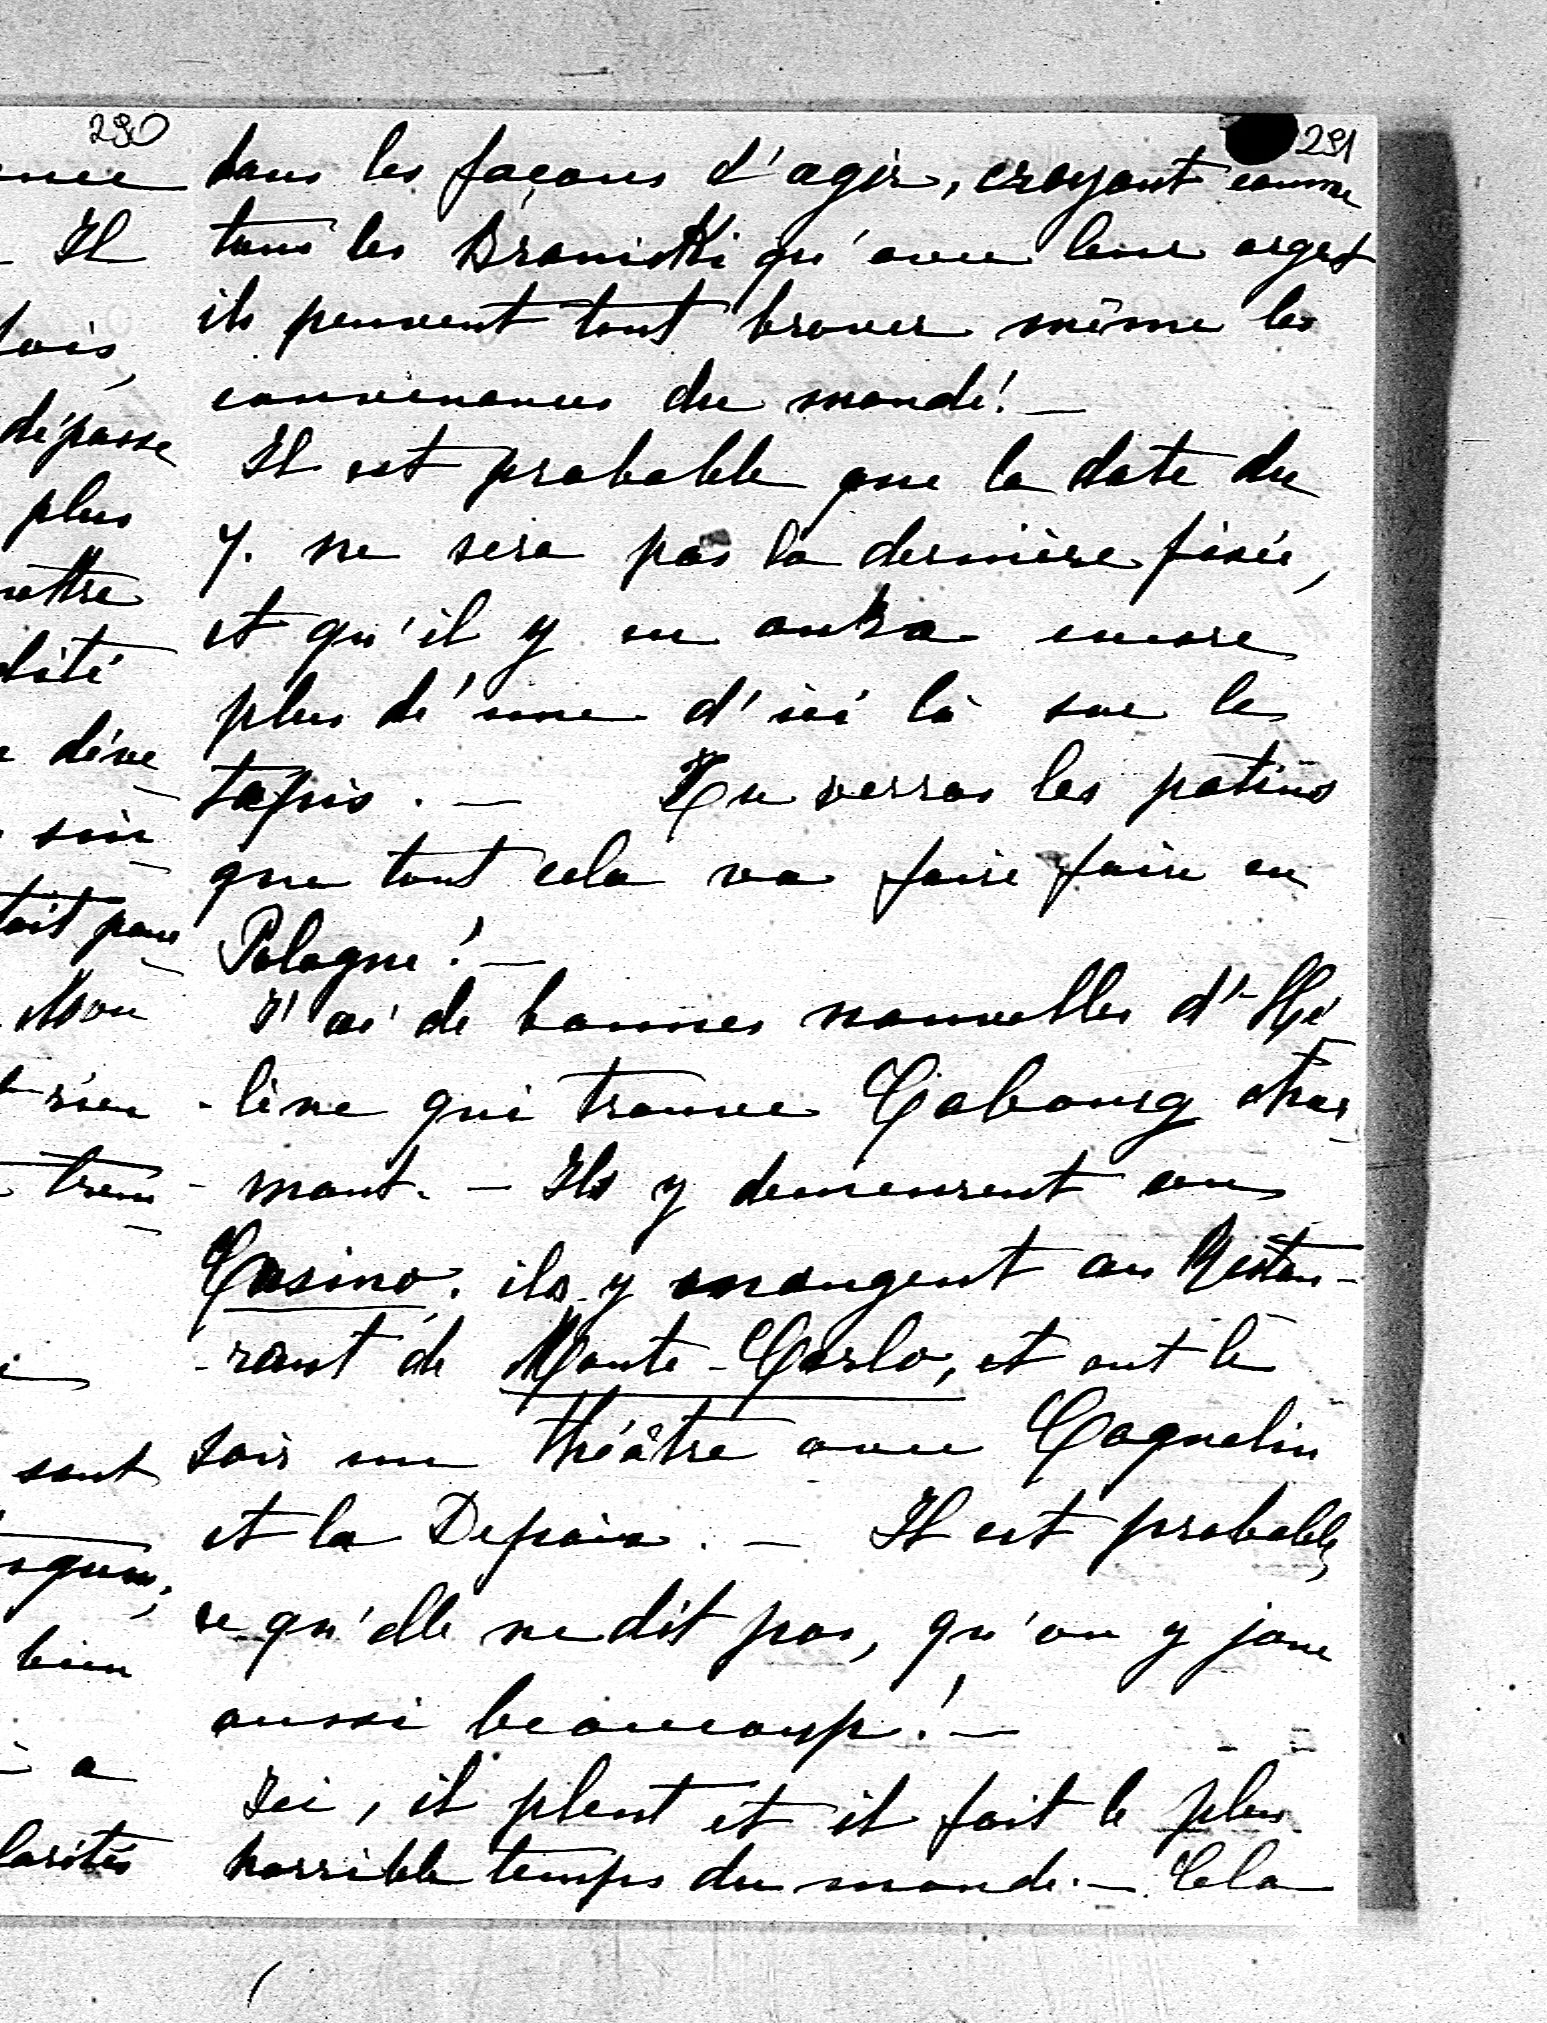 290
291
dans les façons d'agir, croyant comme
tous les Branicki qu'avec leur argent
ils peuvent tout braver même les
convenances du monde! —
Il est probable que la date du
7. ne sera pas la dernière fixée,
et qu'il y en aura encore
plus d'une d'ici là sur le
tapis. — Tu verras les potins
que tout cela va faire faire en
Pologne! —
J'ai de bonnes nouvelles d'Hé
-lène qui trouve Cabourg char
-mant. — Ils y demeurent au
Casino, ils y mangent au Restau-
-rant de Monte-Carlo, et ont le
soir un théâtre avec Coquelin
et la Depoix. — Il est probable,
ce qu'elle ne dit pas, qu'on y joue
aussi beaucoup! —
Ici, il pleut et il fait le plus
horrible temps du monde. — Cela
Il
dépasse
plus
dité
pour
Mon
rien
sont
bien
a
larités